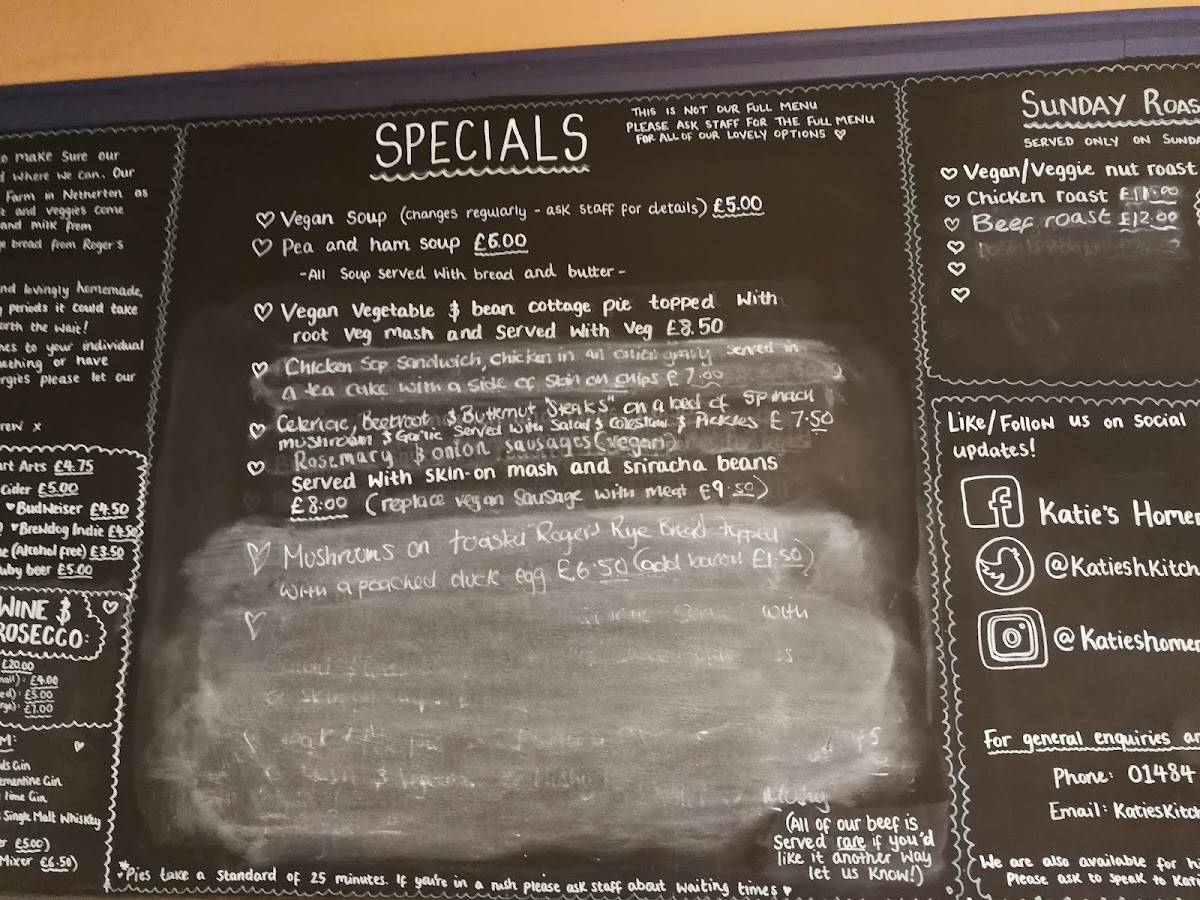 to make sure our
where we can. Our
Farm in Netherton as
and veggies come
and milk from
bread from Roger's
and lovingly homemade,
periods it could take
worth the wait!
to your individual
something or have
please let our
x
Arts £4.75
Cider £5.00
♥Budweiser £4.50
♥Brewdog Indie £4.50
(Alcohol free) £3.50
Ruby beer £5.00
WINE &
PROSECCO:
£20.00
£4.00
£5.00
£7.00
Gin
Clementine Gin
Time Gin
Single Malt Whiskey
£5.00)
Mixer £6.50)
SPECIALS
THIS IS NOT OUR FULL MENU
PLEASE ASK STAFF FOR THE FULL MENU
FOR ALL OF OUR LOVELY OPTIONS ♡
♡ Vegan Soup (changes regularly - ask staff for details) £5.00
♡ Pea and ham soup £6.00
-All Soup served with bread and butter-
♡ Vegan Vegetable & bean cottage pie topped with
root veg mash and served with veg £8.50
♡ Chicken Sop Sandwich, chicken in an onion gravy served in
a tea cake with a side of skin on chips £7.00
♡ Celeriac, Beetroot & Butternut "Steaks" on a bed of spinach
mushroom & Garlic served with Salad & Coleslaw & Pickles £7.50
♡ Rosemary & onion sausages (vegan)
served with skin-on mash and sriracha beans
£8.00 (replace vegan sausage with meat £9.50)
♡ Mushrooms on toasted Rogers Rye Bread topped
with a poached duck egg £6.50 (add bacon £1.50)
♡ with
(All of our beef is
served rare if you'd
like it another way
let us know!)
*Pies take a standard of 25 minutes. If you're in a rush please ask staff about waiting times ♥
SUNDAY
SERVED ONLY ON
♡ Vegan/Veggie nut roast
♡ Chicken roast £11.00
♡ Beef roast £12.00
♡
♡
♡
Like/Follow us on social
updates!
Katie's
@KatieshKitch
@Katieshomem
For general enquiries
Phone: 01484
Email: KatiesKitch
We are also available for
Please ask to speak to